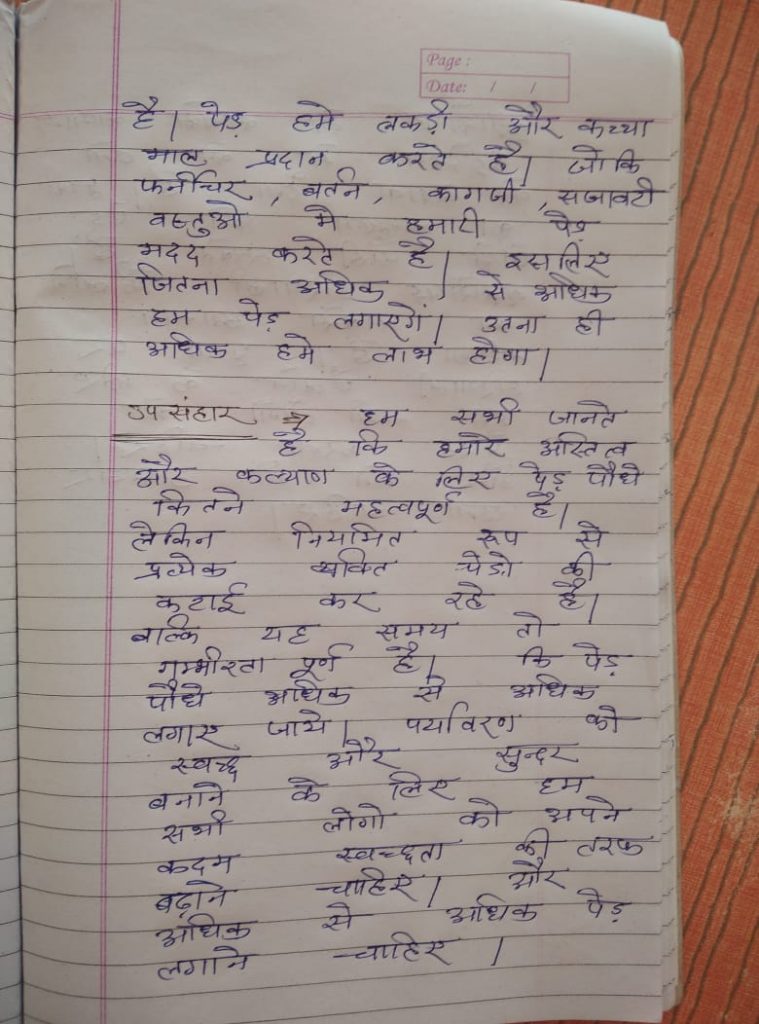 Page :
Date: / /
है। पेड़ हमे लकड़ी और कच्चा
माल प्रदान करते है। जोकि
फर्नीचिर , बर्तन , कागजी , सजावटी
वस्तुओ मे हमारी पेड़
मदद करते है। इसलिए
जितना अधिक से अधिक
हम पेड़ लगाएगें। उतना ही
अधिक हमे लाभ होगा।
उप संहार ⇒ हम सभी जानते
है कि हमारे अस्तित्व
और कल्याण के लिए पेड़ पौधे
कितने महत्वपूर्ण है।
लेकिन नियमित रूप से
प्रत्येक व्यक्ति पेड़ो की
कटाई कर रहे है।
बल्कि यह समय तो
गम्भीरता पूर्ण है। कि पेड़
पौधे अधिक से अधिक
लगाए जाये। पर्यावरण को
स्वच्छ और सुन्दर
बनाने के लिए हम
सभी लोगो को अपने
कदम स्वच्छता की तरफ
बढ़ाने चाहिए। और
अधिक से अधिक पेड़
लगाने चाहिए ।